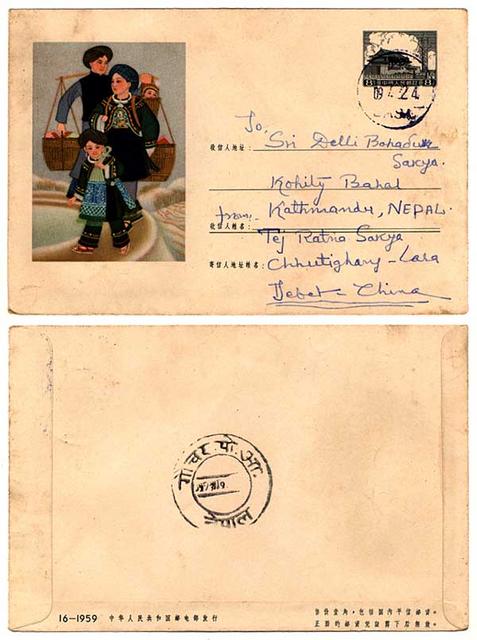 To,
Sri Delli Bahadur
Sakya.
收信人地址:
Kohity Bahal
Kathmandu, NEPAL.
from,-
收信人姓名:
Tej Ratna Sakya
寄信人地址姓名:
Chhutighang - Lasa
Tebet - China
गोश्वरा पो. आ.
नेपाल
16-1959 中华人民共和国邮电部发行